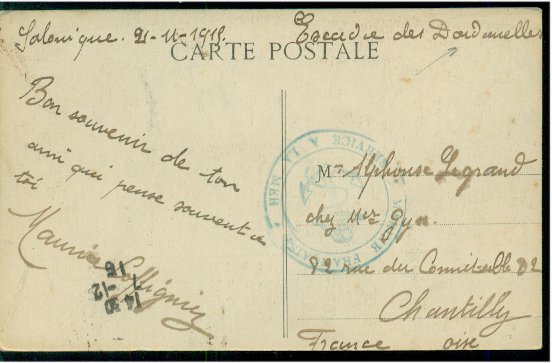 Salonique. 21-11-1915. Escadre des Dardanelles
CARTE POSTALE
Bon souvenir de ton
ami qui pense souvent a
toi
Maurice
14 30
7 -12
15
SERVICE A LA MER
Mr Alphonse Legrand
chez Mr Gyn.
82 rue du Connétable 82
Chantilly
France oise